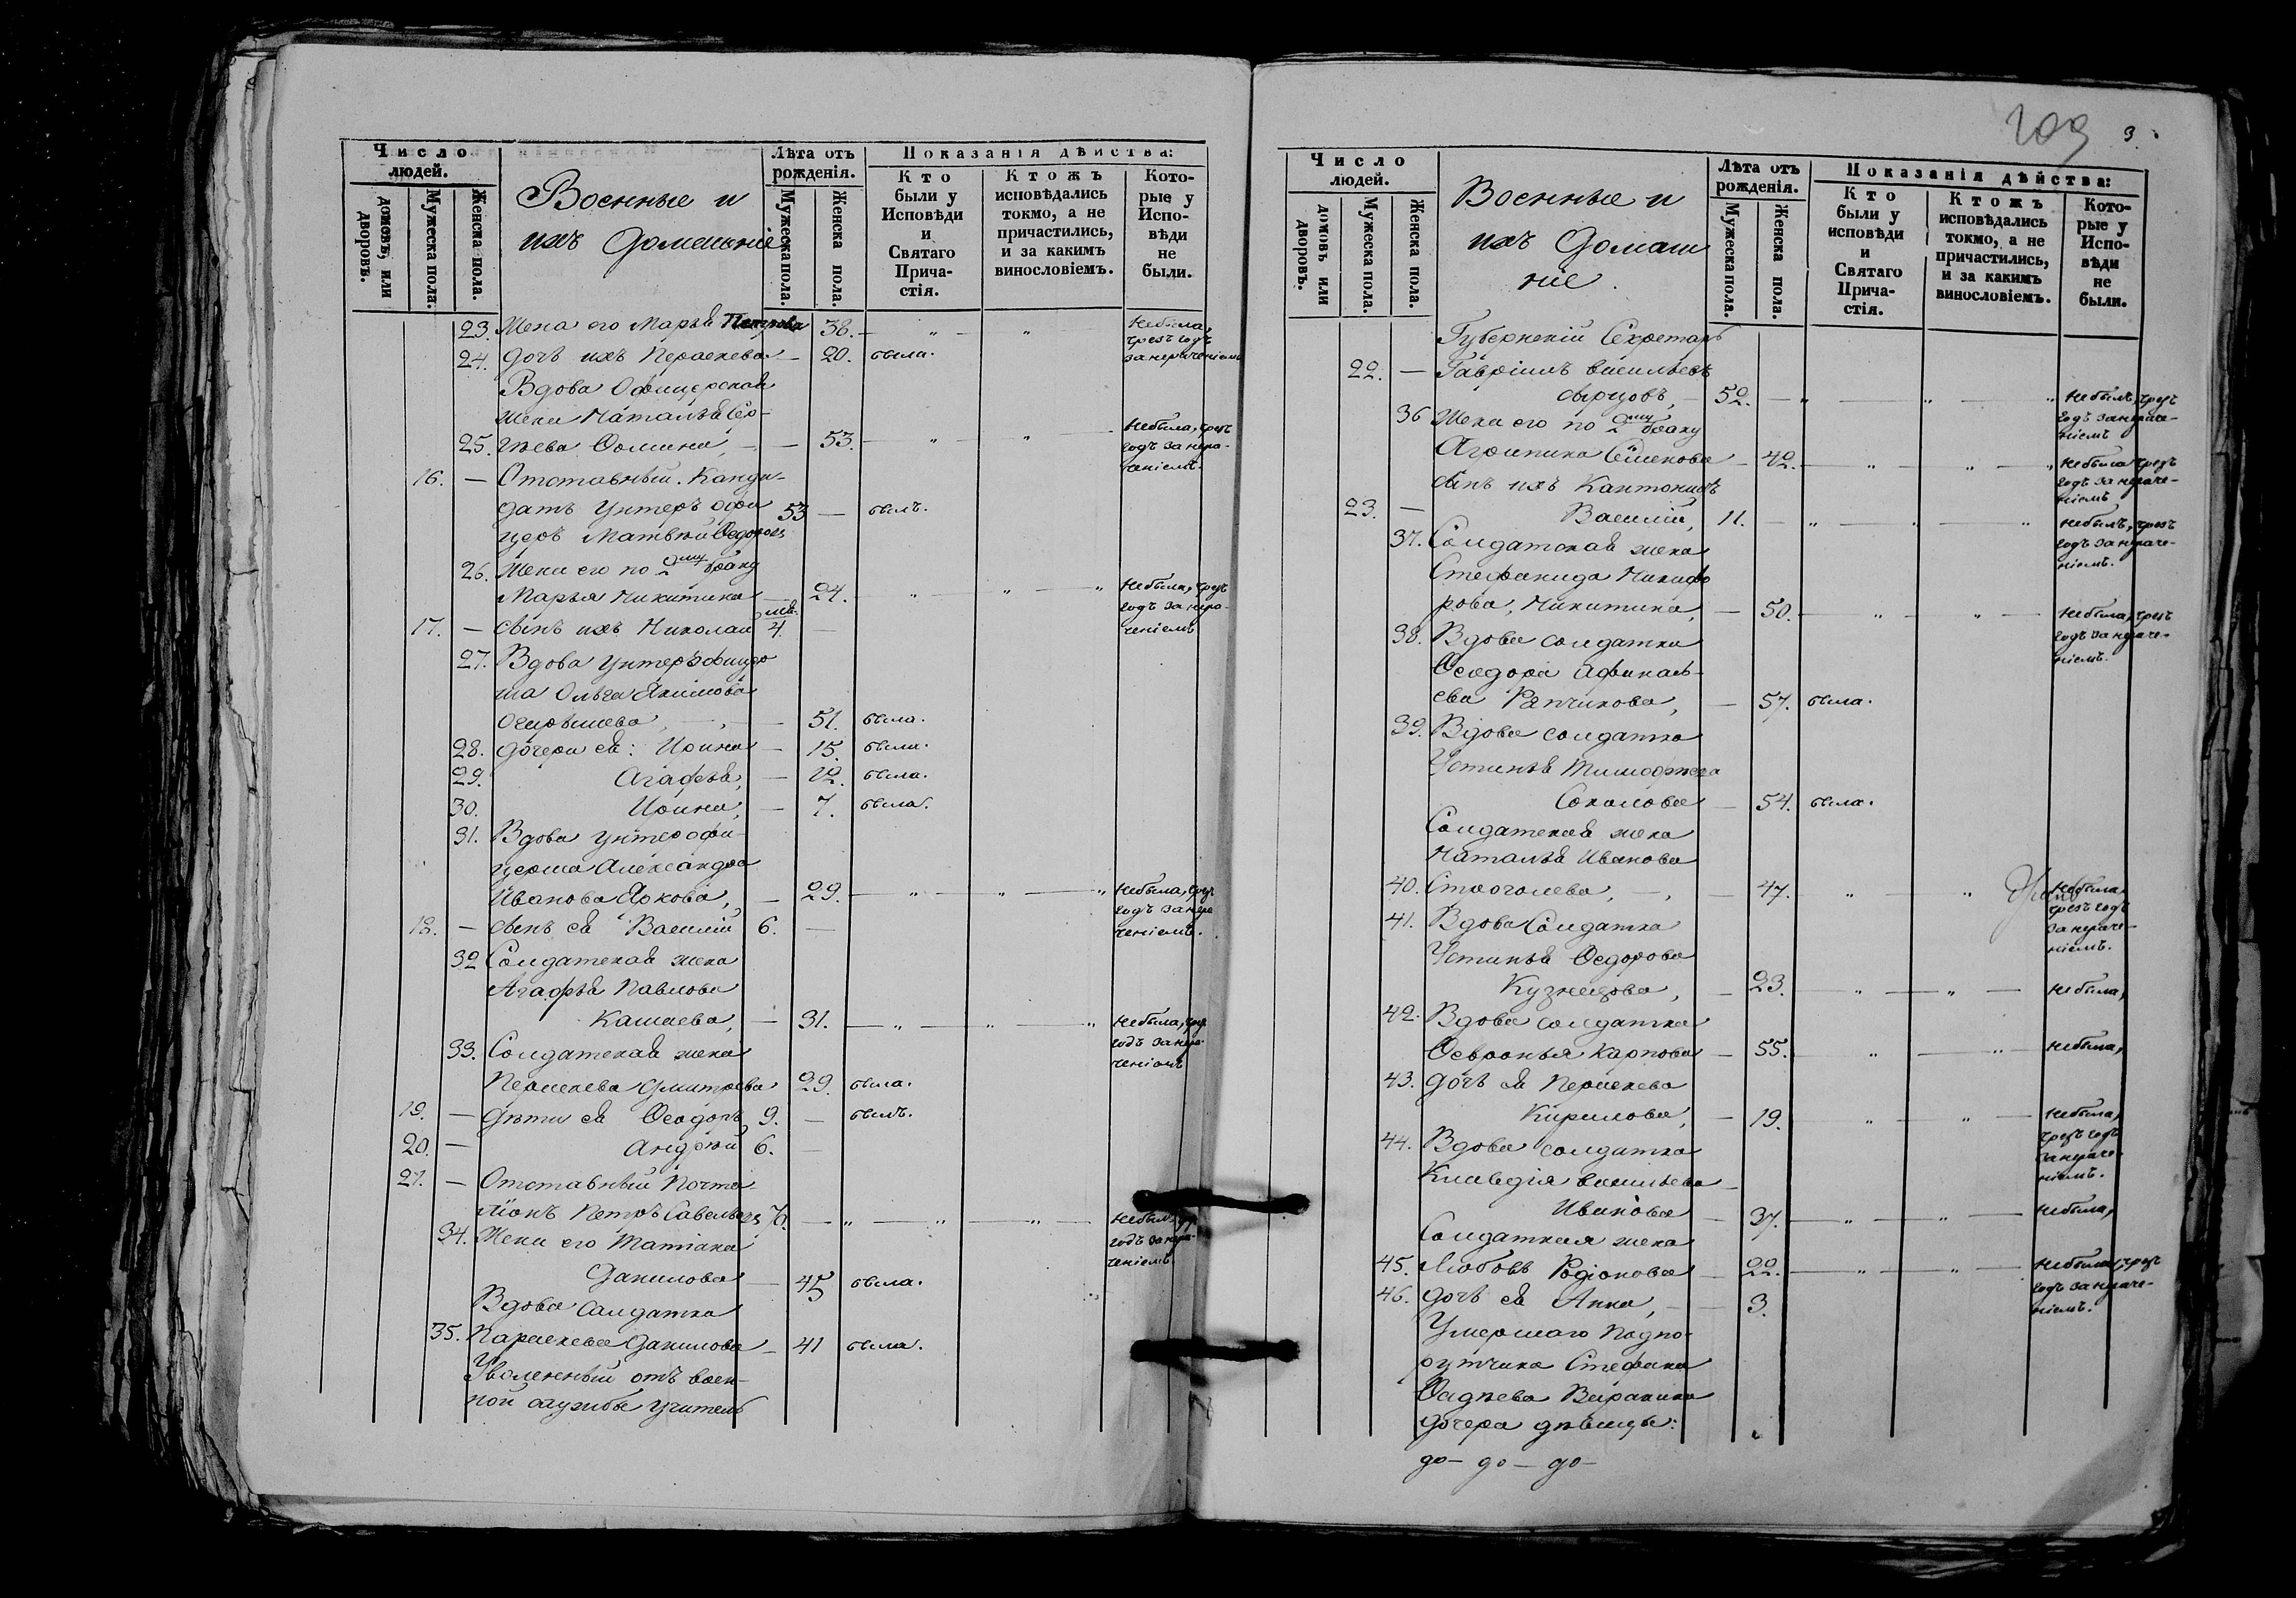 Число
людей.
домовъ, или дворовъ.
Мужеска пола.
Женска пола.
Военные и
ихъ домашніе
Лѣта отъ
рожденія.
Мужеска пола.
Женска пола.
Показанія дѣйства:
Кто
были у
Исповѣди
и
Святаго
Прича-
стія.
Ктожъ
исповѣдались
токмо, а не
причастились,
и за какимъ
винословіемъ.
Кото-
рые у
Испо-
вѣди
не
были.
23. Жена его Марья Петрова 38. — „ — „ Небыла,
чрезъ годъ
24. Дочь ихъ Параскева — 20. была. за нераченіемъ
Вдова Офицерская
жена Наталья Сер-
25. гѣева Фомина, — 53. — „ — „ — Небыла, чрезъ
годъ за нера-
ченіемъ.
16. — Отставный Канди-
датъ Унтеръ офи 53 — былъ.
церъ Матвѣй Ѳедоровъ
26. Жена его по 2му браку
Марья Никитина — 24. — „ — „ — „ Небыла, чрезъ
годъ за нера-
17. — Сынъ ихъ Николай 4. — ченіемъ
27. Вдова Унтеръ офицер
ша Ольга Якимова
— 51. была.
28. Дочери ея: Ирина — 15. была.
29. Агафья, — 12. была.
30. Ирина, — 7. была.
31. Вдова Унтерофи-
церша Александра
Иванова Яркова, — 29. — „ — „ — „ Небыла, чрезъ
годъ за нера
18. — Сынъ ея Василій 6. — ченіемъ.
32 Солдатская жена
Агафья Павлова
Кашаева, — 31. — „ — „ — „ Небыла, чрезъ
годъ за нера-
33. Солдатская жена ченіемъ
Параскева Дмитрева 29. была.
19. — Дѣти ея Ѳеодоръ, 9. — былъ.
20. — Андрей 6. —
21. — Отставный Почта
ліонъ Петръ Савельевъ — „ — „ — „ — Небылъ, чрезъ
34. Жена его Татіана годъ за нера-
ченіемъ.
Данилова — 45 была.
Вдова Солдатка
35. Параскева Данилова — 41 была.
Уволенный отъ воен-
ной службы учитель
3.
Число
людей.
домовъ или дворовъ.
Мужеска пола.
Женска пола.
Военные и
ихъ домаш
ніе.
Лѣта отъ
рожденія.
Мужеска пола.
Женска пола.
Показанія дѣйства:
Кто
были у
исповѣди
и
Святаго
Прича-
стія.
Ктожъ
исповѣдались
токмо, а не
причастились,
и за какимъ
винословіемъ.
Кото-
рые у
Испо-
вѣди
не
были.
Губернскій Секретарь
22. — Гавріилъ Васильевъ
Сырцовъ, — 52. — „ — „ — „ Небылъ, чрезъ
годъ за нераче-
ніемъ
36 Жена его по 2му браку
Агрипина Семенова — 42. — „ — „ — „ Небыла чрезъ
годъ за нераче-
ніемъ
Сынъ ихъ Кантонистъ
23. — Василій, 11. — „ — „ — „ Небылъ, чрезъ
годъ за нераче-
ніемъ.
37. Солдатская жена
Стефанида Никифо
рова, Никитина, — 50. — „ — „ — Небыла, чрезъ
годъ за нераче-
ніемъ.
38. Вдова солдатка
Ѳеодора Афанась-
ева Рапчикова, — 57. была.
39. Вдова солдатка
Устинья Тимофеева
Соколова — 54. была.
Солдатская жена
Наталья Иванова
40. Строголева, — 47. „ „ Небыла
чрезъ годъ
за нераче-
ніемъ.
41. Вдова Солдатка
Устинья Ѳедорова
Кузнецова, — 23. — „ — „ — Небыла,
42. Вдова солдатка
Ѳевронья Карпова — 55. — „ — „ — Небыла,
43. Дочь ея Параскева
Кирилова, — 19. — „ — „ — Небыла,
чрезъ годъ
за нераче-
ніемъ.
44. Вдова солдатка
Клавдія Васильева
Иванова — 37. — „ — „ — Небыла,
Солдаткая жена
45. Любовь Родіонова — 22. — „ — „ — Небыла, чрезъ
годъ за нераче-
ніемъ.
46. Дочь ея Анна, — 3.
Умершаго Подпо-
рутчика Стефана
дочера дѣвицы:
до — до — до —